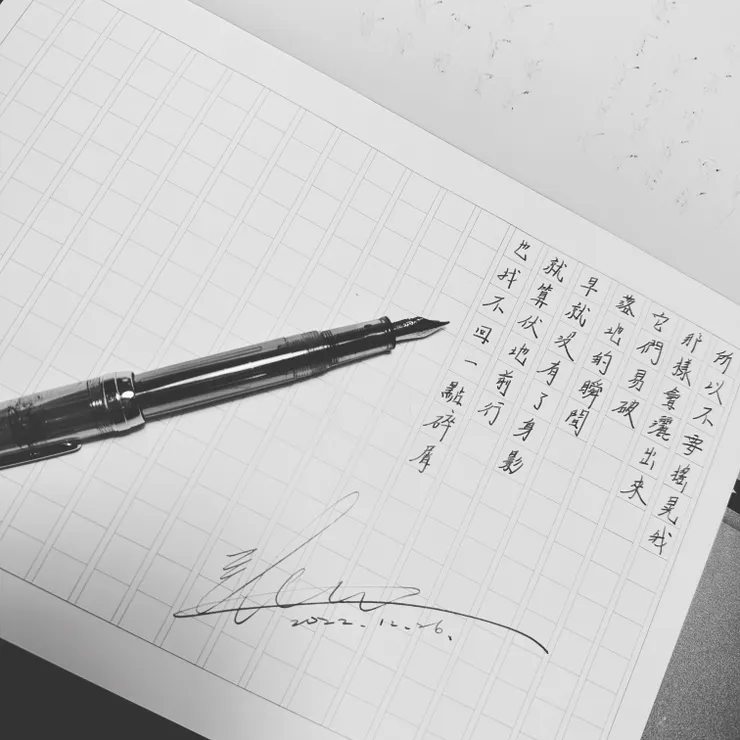 所以不要搖晃我
那樣會灑出來
它們易破
落地的瞬間
早就沒有了身影
就算伏地前行
也找不回一點碎屑
2022.12.26.